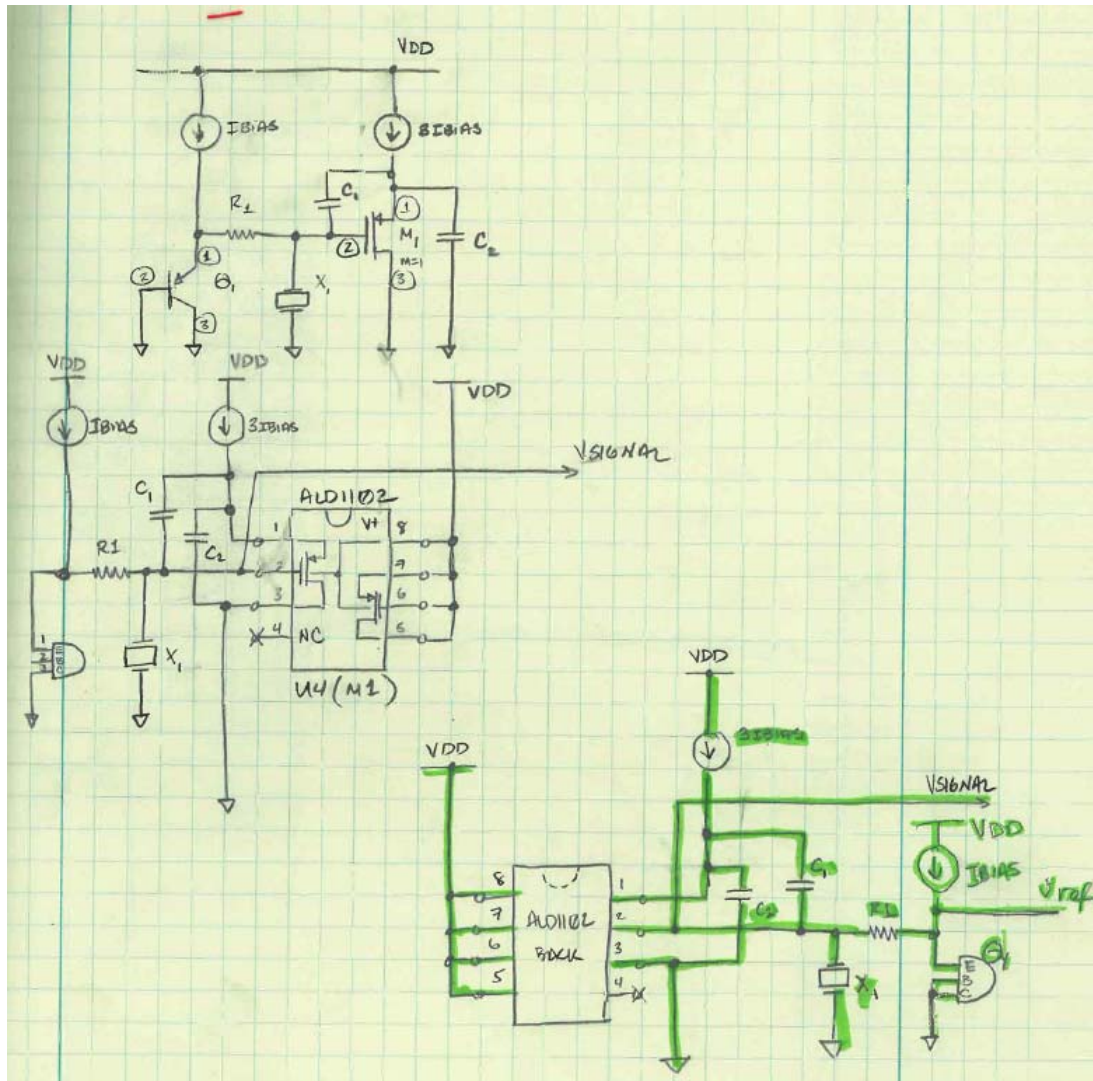 VDD
IBIAS
3IBIAS
R1
C1
1
2
M1
M=1
3
C2
1
2
Q1
3
X1
VDD
VDD
VDD
IBIAS
3IBIAS
VSIGNAL
C1
ALD1102
C2
R1
1
2
3
4
NC
V+
8
7
6
5
1
X1
U4(M1)
VDD
3IBIAS
VDD
VSIGNAL
VDD
IBIAS
Vref
8
7
6
5
ALD1102
BACK
1
2
3
4
C2
C1
R1
X1
Q1
E
B
C